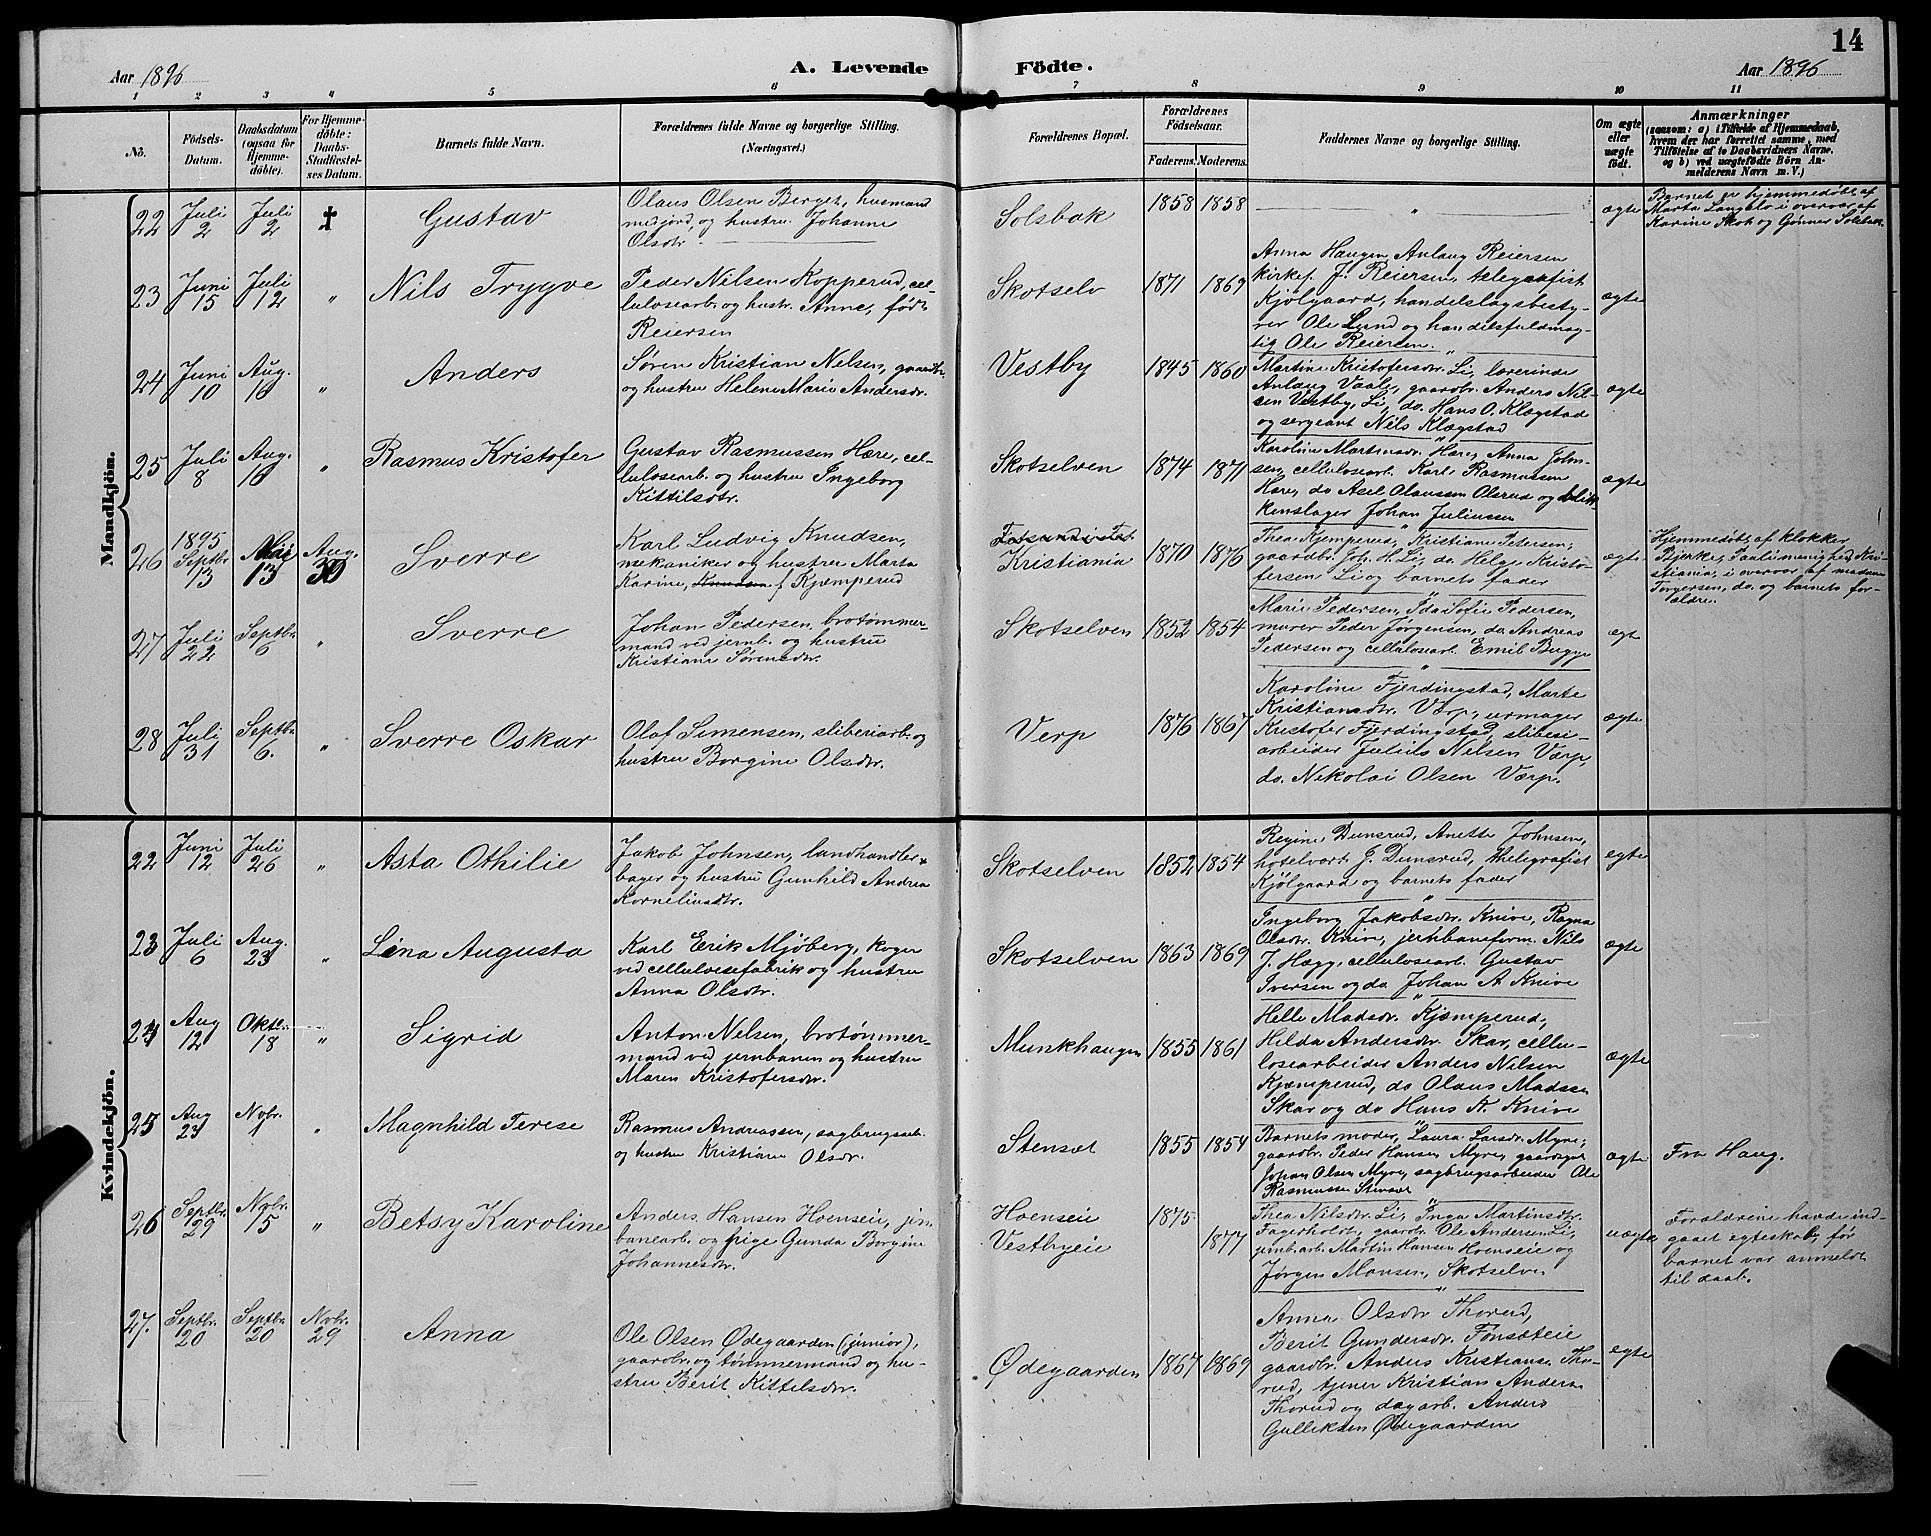 14
Aar 1896
A. Levende
Födte.
Aar 1896
1 2 3 4 5 6 7 8 9 10 11
No.
Födsels-
Datum.
Daabsdatum
(ogsaa for
Hjemme-
döbte).
For Hjemme-
döbte:
Daabs-
Stadfæstel-
ses Datum.
Barnets fulde Navn.
Forældrenes fulde Navne og borgerlige Stilling.
(Næringsvei.)
Forældrenes Bopæl.
Forældrenes
Födselsaar.
Faderens. Moderens.
Faddernes Navne og borgerlige Stilling.
Om ægte
eller
uægte
födt.
Anmærkninger
(saasom: a) i Tilfælde af Hjemmedaab,
hvem der har forrettet samme, med
Tilföielse af to Daabsvidners Navne,
og b) ved uægtefödte Börn An-
melderens Navn m. V.)
Mandkjön.
22
Juli
2
Juli
2
†
Gustav
Olaus Olsen Berget, husmand
med jord, og hustru Johanne
Olsdtr.
Solsbak
1858 1858
"
ægte
Barnet er hjemmedøbt af
Marta Langklo i overvær af
Karine Skok og Gønner Solsbak.
23
Juni
15
Juli
12
"
Nils Trygve
Peder Nilsen Kopperud, cel-
lulosearb. og hustr. Anne, født
Reiersen
Skotselv
1871 1869
Anna Haugen, Anlaug Reiersen
kirkes. J. Reiersen, telegrafist
Kjølgaard, handelslagsbesty-
rer Ole Lund og handelsfuldmæg-
tig Ole Reiersen.
ægte
24
Juni
10
Aug.
16
"
Anders
Søren Kristian Nelsen, gaardbr.
og hustru Helene Marie Andersdr.
Vestby
1845 1860
Martine Kristofersdr. Li, lærerinde
Anlaug Vaale, gaardbr. Anders Nil-
sen Vestby, Li, do. Hans O. Klægstad
og sergeant Nils Klægstad
ægte
25
Juli
8
Aug.
16
"
Rasmus Kristofer
Gustav Rasmussen Hære, cel-
lulosearb. og hustru Ingeborg
Kittilsdtr.
Skotselven
1874 1871
Karoline Martinsdr. Hære, Anna John-
sen, cellulosearb. Karl Rasmussen
Hære, do Axel Olaussen Olsrud og blik-
kenslager Johan Juliussen
ægte
26
1895
Septbr.
13
Mai
13
Aug.
30
Sverre
Karl Ludvig Knudsen,
mekaniker og hustru Marta
Karine, Knudsen f. Kjemperud
Kristiania
1870 1876
Thea Kjemperud, Kristiane Petersen,
gaardbr. Joh. H. Li, do. Helge Kristo-
fersen Li og barnets fader
ægte
Hjemmedøbt af klokker
Bjerke, Pauli menighed Kri-
stiania, i overvær af madam
Torgersen, do. og barnets for-
ældre.
27
Juli
22
Septbr.
6
"
Sverre
Johan Pedersen, brotømmer-
mand ved jernb. og hustru
Kristiane Sørensdr.
Skotselven
1852 1854
Marie Pedersen, Ida Sofie Pedersen,
murer Peder Jørgensen, do. Andreas
Pedersen og cellulosearb. Emil Bugge
ægt
28
Juli
31
Septbr.
6.
"
Sverre Oskar
Olaf Simensen, sliberiarb. og
hustru Borgine Olsdr.
Verp
1876 1867
Karoline Fjerdingstad, Marte
Kristiansdr. Værp, urmager
Kristofer Fjerdingstad, sliberi-
arbeider Juliils Nelsen Værp,
do. Nekolai Olsen Værp.
ægte
Kvindekjön.
22
Juni
12
Juli
26
"
Asta Othilie
Jakob Johnsen, landhandler &
bager og hustru Gunhild Andrea
Korneliusdtr.
Skotselven
1852 1854
Regine Dunsrud, Anette Johnsen,
hotelvært J. Dunsrud, thelegrafist
Kjølgaard og barnets fader
egte
23
Juli
6
Aug.
23
"
Lina Augusta
Karl Erik Mjøberg, koger
ved cellulosefabrik og hustru
Anna Olsdtr.
Skotselven
1863 1869
Ingeborg Jakobsdr. Knive, Ragna
Olsdtr. Knive, jernbaneform. Nils
J. Hægg, cellulosearb. Gustav
Iversen og do Johan A Knive
ægte
24
Aug
12
Oktr.
18
"
Sigrid
Anton Nelsen, brotømmer-
mand ved jernbanen og hustru
Maren Kristofersdr.
Munkhaugen
1855 1861
Helle Madsdr. Kjæmperud,
Hilda Andersdr. Skar, cellu-
losearbeider Anders Nelsen
Kjæmperud, do Olaus Madsen
Skar og do Hans K. Knive
ægte
25
Aug
23
Novbr.
1
"
Magnhild Terese
Rasmus Andreassen, sagbrugsarb.
og hustru Kristiane Olsdr.
Stenset
1855 1854
Barnets moder, Laura Larsdr. Myre,
gaardbr. Peder Hansen Myre, gaardbr.
Johan Olsen Myre, sagbrugsarbeider Ole
Rasmussen Stenset
ægte
Fra Haug.
26
Septbr.
29
Novbr.
15
"
Betsy Karoline
Anders Hansen Hoenseie, jrn-
banearb. og pige Gunda Borgine
Johannesdr.
Hoenseie
Vestbyeie
1875
1877
Thea Nilsdr. Li, Inga Martinsdtr.
Fagerholdt, gaardbr. Ole Andersen Li,
jernb.arb. Martin Hansen Hoenseie og
Jørgen Monsen, Skotselven
uægte
Forældrene havde ind-
gaaet egteskab, før
barnet var anmeldt
til daab.
27.
Septbr.
20
Septbr.
20
Novbr.
29
Anna
Ole Olsen Ødegaarden (junior),
gaardbr. og tømmermand og hu-
stru Berit Kittelsdr.
Ødegaarden
1867 1869
Anna Olsdtr Thorud,
Berit Gundersdr. Fonsæteie
gaardbr. Anders Kristians. Tho-
rud, tjener Kristian Anders.
Thorud og dagarb. Anders
Gulliksen Ødegaarden
egte